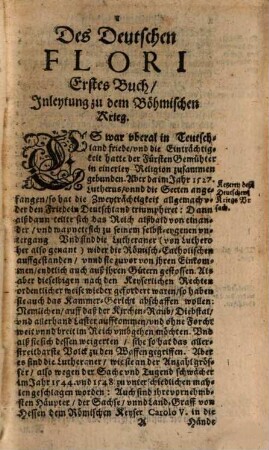 Des Deutschen
FLORI
Erstes Buch/
Inleytung zu dem Böhmischen
Krieg.
ES war vberal in Teutsch-
land friede/vnd die Einträchtig-
keit hatte der Fürsten Gemühter
in einerley Religion zusammen
gebunden. Aber da im Jahr 1527.
Lutherus/vnnd die Secten ange-
fangen/so hat die Zweyträchtigkeit allgemach wi-
der den Frieden in Deutschland triumphiret: Dann
alßdann theilte sich das Reich alßbald von einan-
der/ vnd naygete sich zu seinem selbst-eygenen vn-
tergang Vnd sind die Lutheraner (von Luthero
her also genant) wider die Römisch-Catholischen
auffgestanden/ vnd sie zuvor von jhren Einkom-
men/endlich auch auß jhren Gütern gestossen. Als
aber dieselbigen nach den Keyserlichen Rechten
ordentlicher weise wieder gefodert waren/ so haben
sie auch das Kammer-Gericht abschaffen wollen:
Nemlichen/ auff daß der Kirchen-Raub/Diebstal/
vnd allerhand Laster auffkommen/vnd ohne Forcht
weit vnnd breit im Reich vmbgehen möchten. Vnd
als sie sich dessen weigerten/ so hat das aller-
streitbarste Volck zu den Waffen gegriffen. Aber
es sind die Lutheraner/ wie sie an der Anzahl grös-
ser/ also wegen der Sache vnd Tugend schwächer
im Jahr 1544. vnd 1548 zu vnterschiedlichen mah-
len geschlagen worden: Auch sind jhre vornehmb-
sten Häupter/ der Sachs/ vnnd Land-Graff von
Hessen dem Römischen Keyser Carolo V. in die
A Hände
Ketzerey deß
Deutschen
Kriegs Vr
sach.